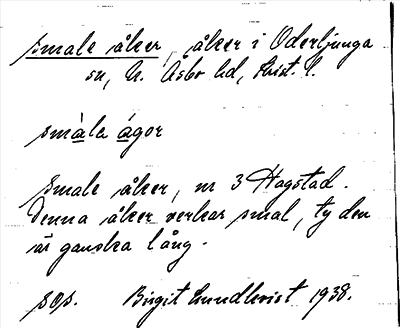 smale åker, åker i Oderljunga
sn, N. Åsbo hd, Krist. l.
smála ágor
Smale åker, nr 3 Hagstad.
Denna åker verkar smal, ty den
är ganska lång.
sos. Birgit Lundkvist 1938.